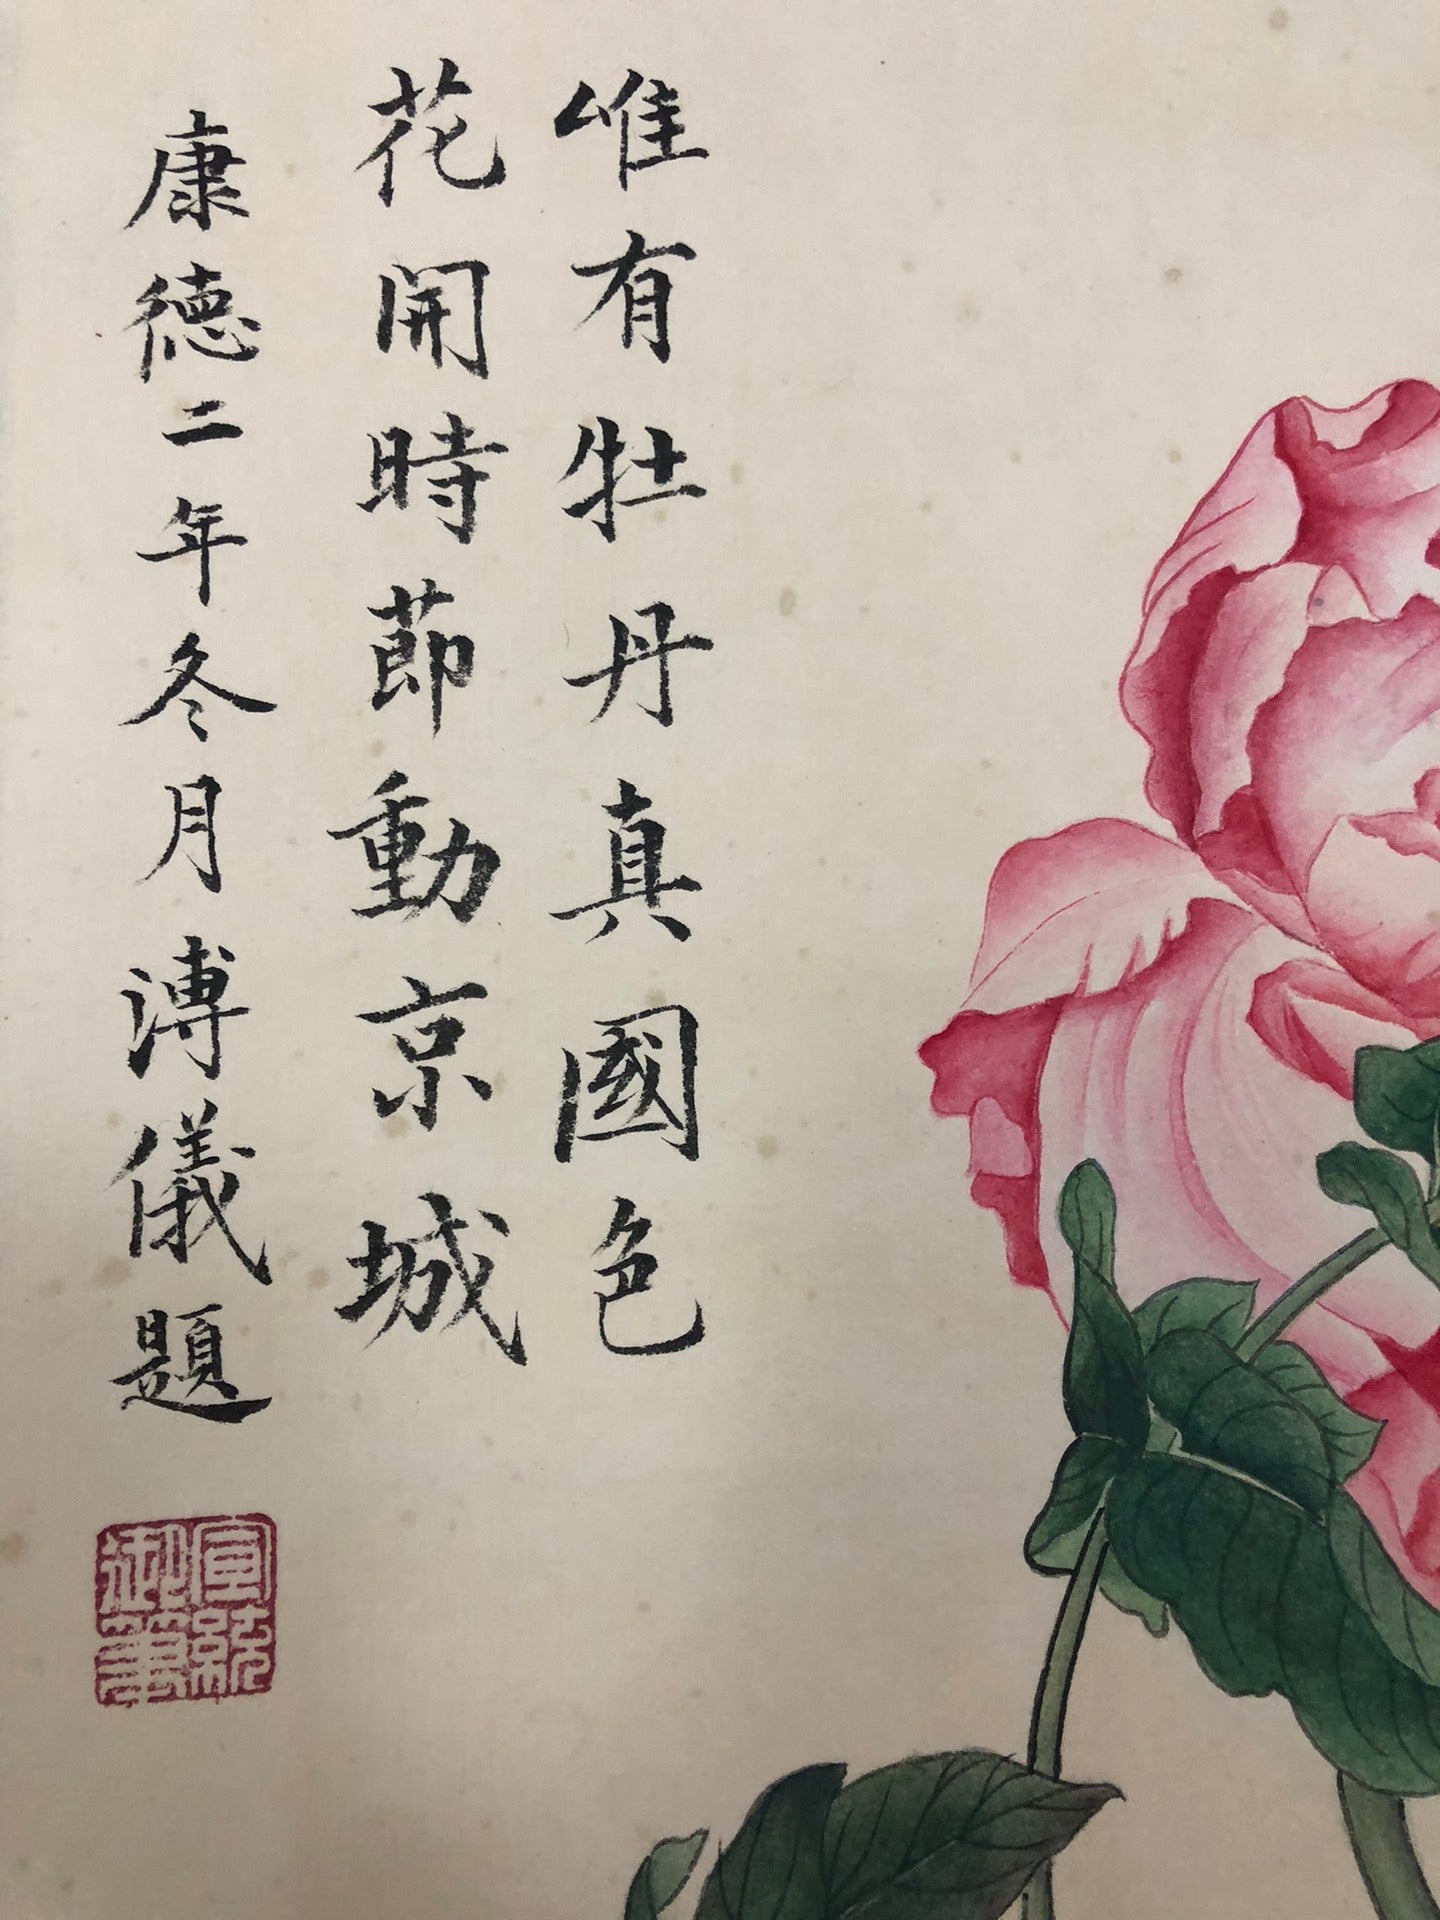 唯有牡丹真國色
花開時節動京城
康德二年冬月溥儀題
宣統御筆